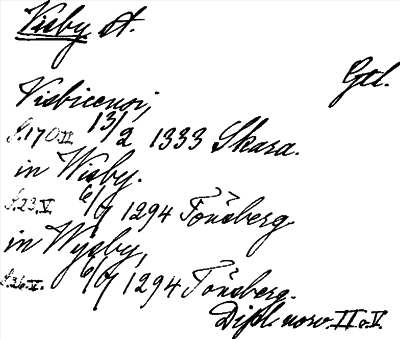 Visby st.
Gtl.
Visbicensi,
S.170.II 13/2 1333 Skara.
in Wisby.
S.23.V 6/7 1294 Tönsberg
in Wysby,
S.26.V. 6/7 1294 Tönsberg.
Dipl. norv. II o. V.